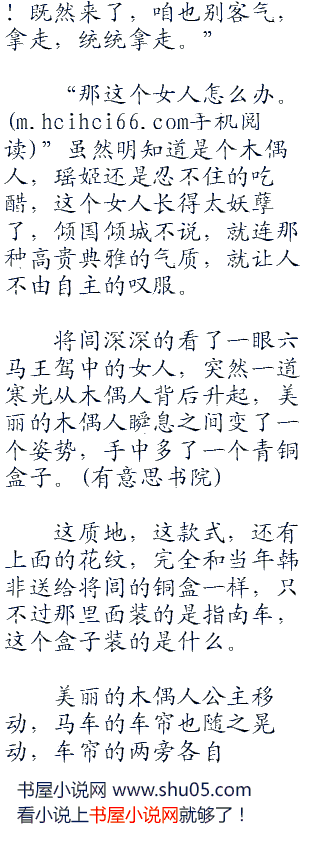 ！既然来了，咱也别客气，
拿走，统统拿走。”
“那这个女人怎么办。
(m.hcihci66.com手机阅
读)”虽然明知道是个木偶
人，瑶姬还是忍不住的吃
醋，这个女人长得太妖孽
了，倾国倾城不说，就连那
种高贵典雅的气质，就让人
不由自主的叹服。
将闾深深的看了一眼六
马王驾中的女人，突然一道
寒光从木偶人背后升起，美
丽的木偶人瞬息之间变了一
个姿势，手中多了一个青铜
盒子。(有意思书院)
这质地，这款式，还有
上面的花纹，完全和当年韩
非送给将闾的铜盒一样，只
不过那里面装的是指南车，
这个盒子装的是什么。
美丽的木偶人公主移
动，马车的车帘也随之晃
动，车帘的两旁各自
书屋小说网 www.shu05.com
看小说上书屋小说网就够了！